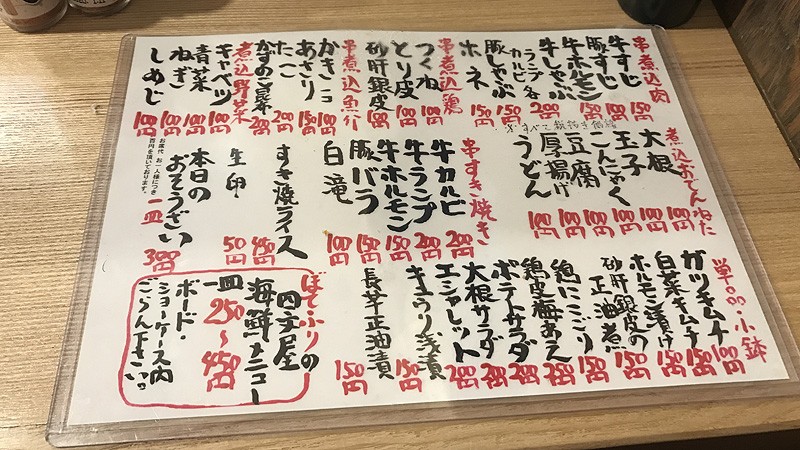 串煮込肉
牛すじ 150円
豚すじ 100円
牛ホルモン 150円
牛しゃぶ 200円
豚しゃぶ 150円
ホネ 150円
串煮込鶏
つくね 100円
とり皮 100円
砂肝銀皮 100円
串煮込魚介
かきニコ 150円
あさり 100円
たこ 200円
煮込野菜
キャベツ 100円
青菜 100円
ねぎ 100円
しめじ 100円
※すべて税抜き価格
煮込おでんねた
大根 100円
玉子 100円
こんにゃく 100円
豆腐 100円
厚揚げ 100円
うどん 100円
串すき焼き
牛カルビ 200円
牛ランプ 200円
牛ホルモン 150円
豚バラ 150円
白滝 100円
すき焼ライス 450円
生卵 50円
本日の
おそうざい
一皿 300円
お席代 お一人様につき
百円を頂いております。
単品・小鉢
ガツキムチ 100円
白菜キムチ 150円
ホルモン漬け 150円
砂肝銀皮の
正油煮 150円
鶏にこごり 150円
鶏皮梅あえ 200円
ポテトサラダ 200円
大根サラダ 200円
エシャレット 200円
きゅうり浅漬 150円
長芋正油漬 150円
ぼてふりの
四文屋
海鮮メニュー
一皿 250〜450円
ボード・
ショーケース内
ごらん下さい。